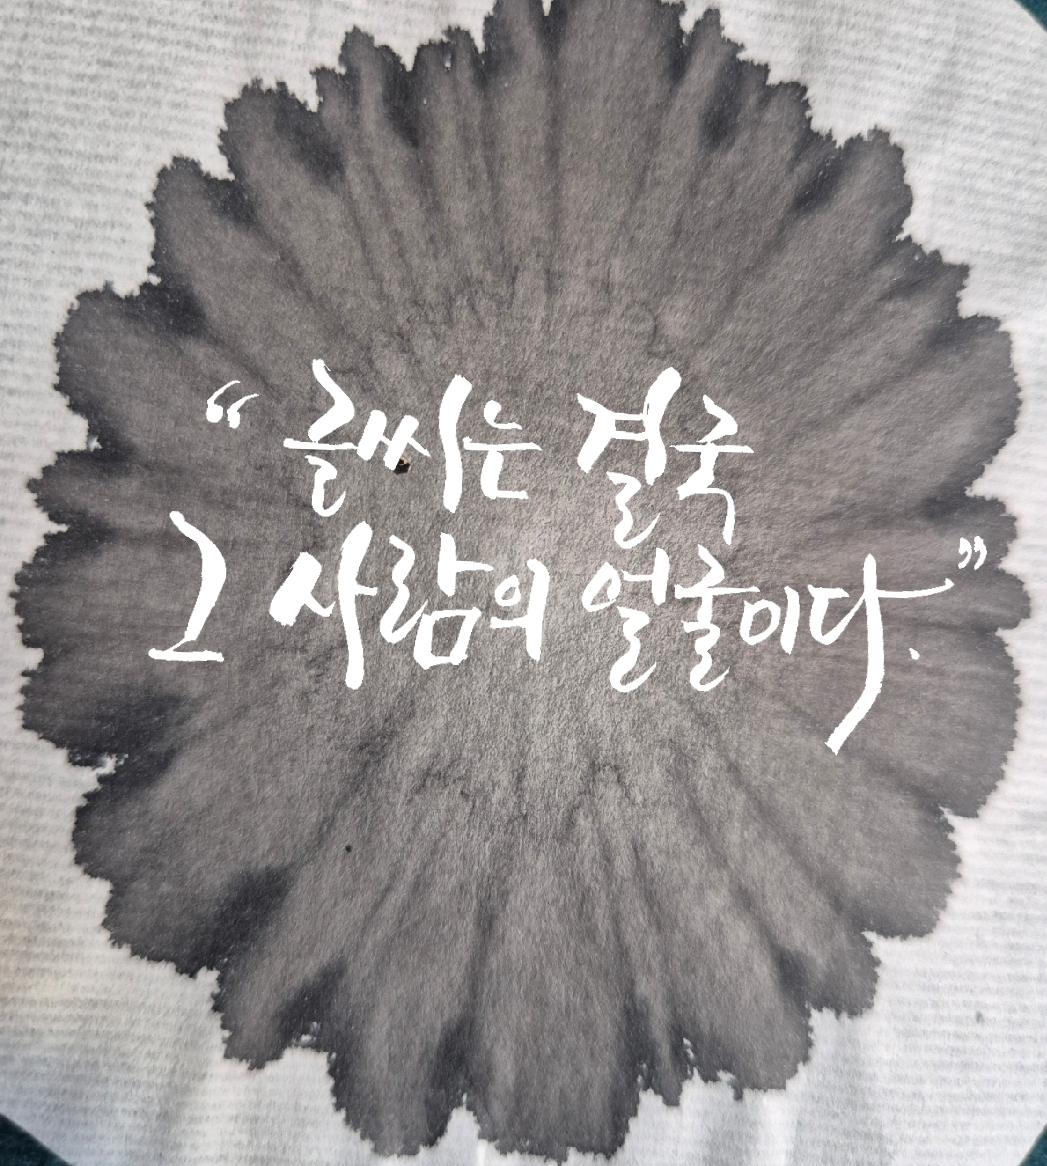 “ 글씨는 결국
그 사람의 얼굴이다. ”